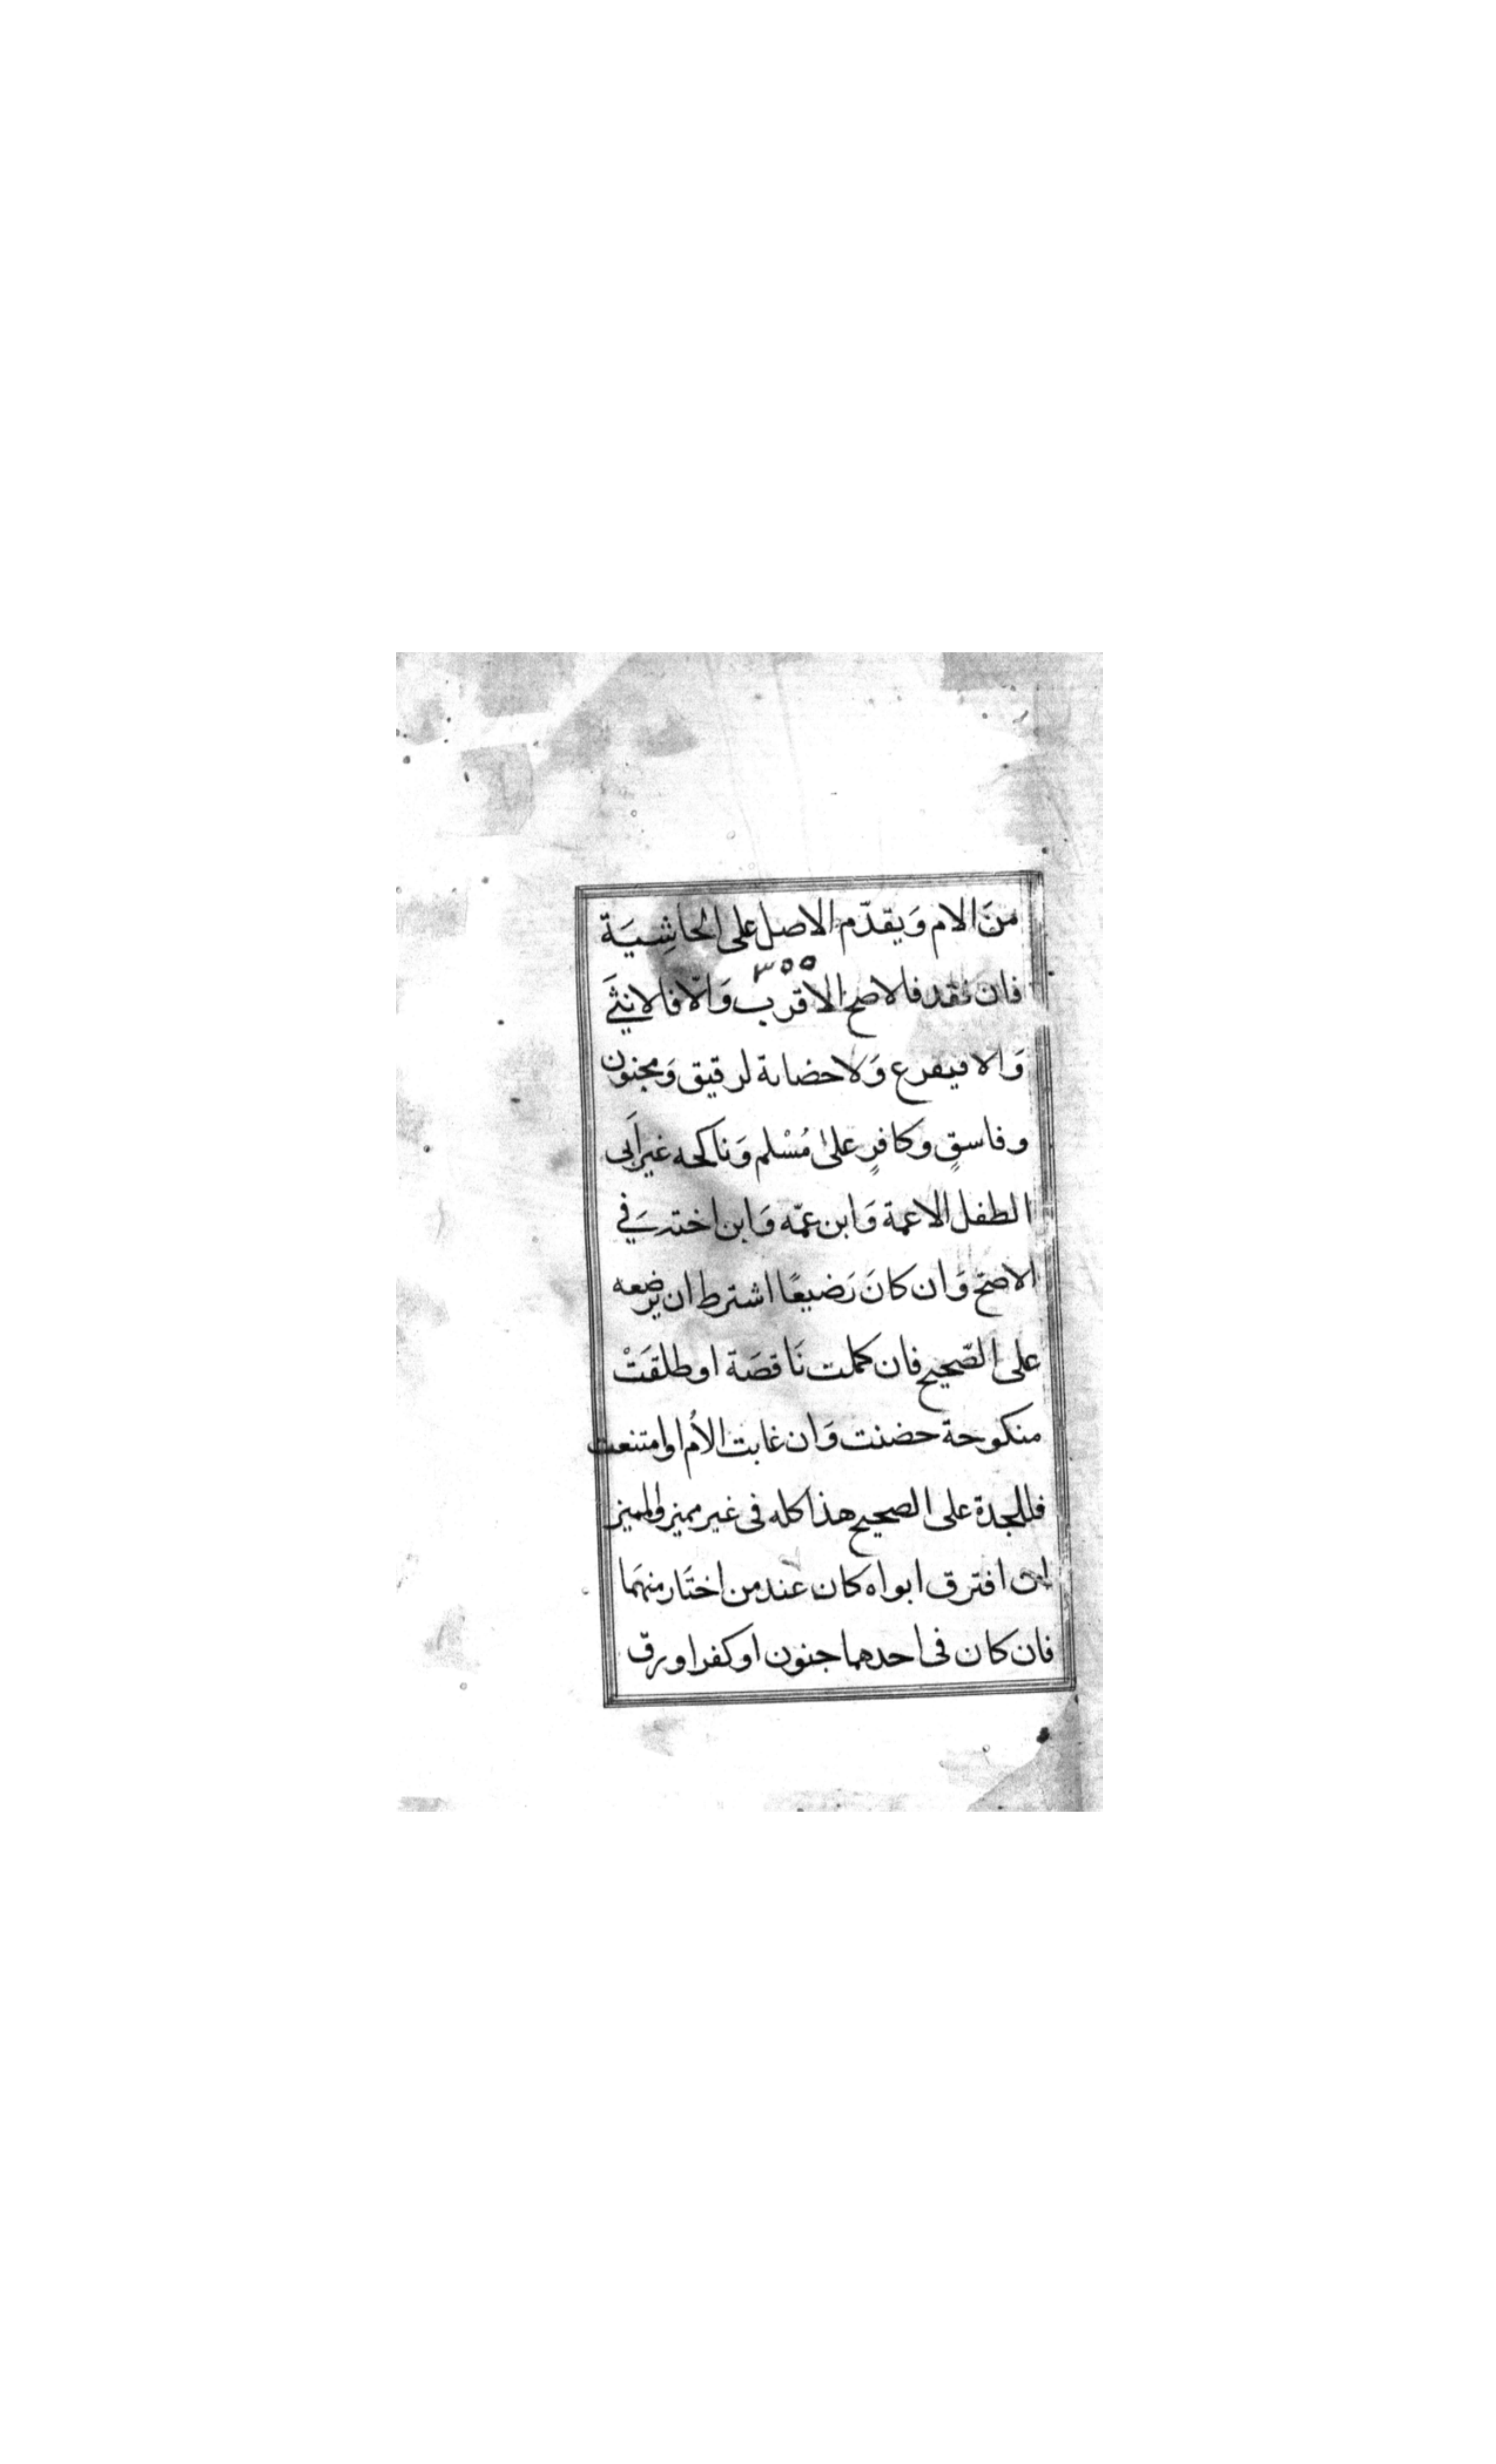 مِنَ الام وَيقدّم الاصل على الحاشِيَة
٣٥٥
فان فقد فالاصح الاقرب وَالّا فالانثَى
وَالا فيقرع وَلا حضانة لرقيق وَمجنون
وفاسقٍ وكافرٍ على مُسْلم وَناكحه غير اَبى
الطفل الا عمة وَابن عمّه وَابن اخته في
الاصَح وَان كانَ رَضيعًا اشترط ان يرضعه
على الصّحيح فان كملت نَاقصَة او طلقَتْ
منكوحة حضنت وَان غابت الاُم او امتنعت
فللجدة على الصحيح هذا كله فى غير مميز والمميز
ان افترق ابواه كان عند من اختَار منهمَا
فان كان فى احدهما جنون او كفر او رق